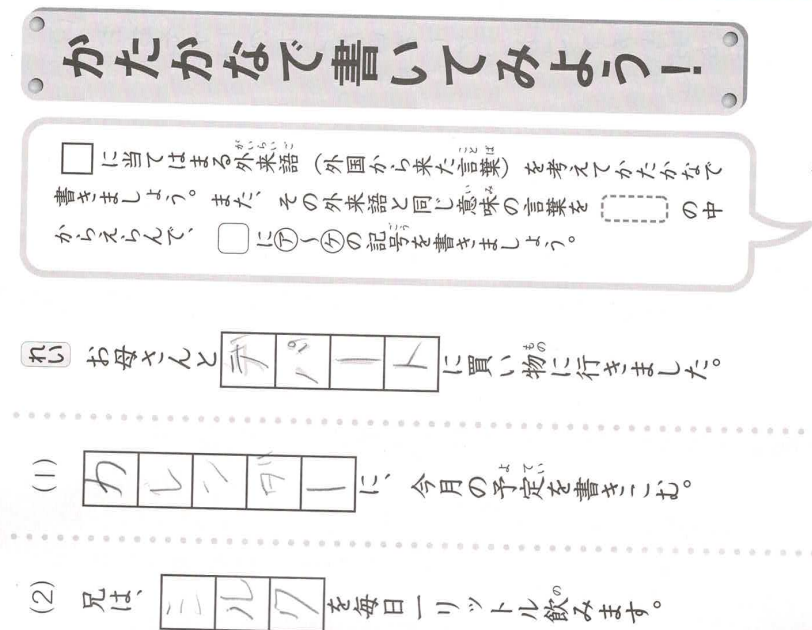 かたかなで書いてみよう！
□に当てはまる外来語（外国から来た言葉）を考えてかたかなで
書きましょう。また、その外来語と同じ意味の言葉を の中
からえらんで、 に㋐～㋘の記号を書きましょう。
れい お母さんとデパートに買い物に行きました。
(1) カレンダーに、今月の予定を書きこむ。
(2) 兄は、ミルクを毎日一リットル飲みます。